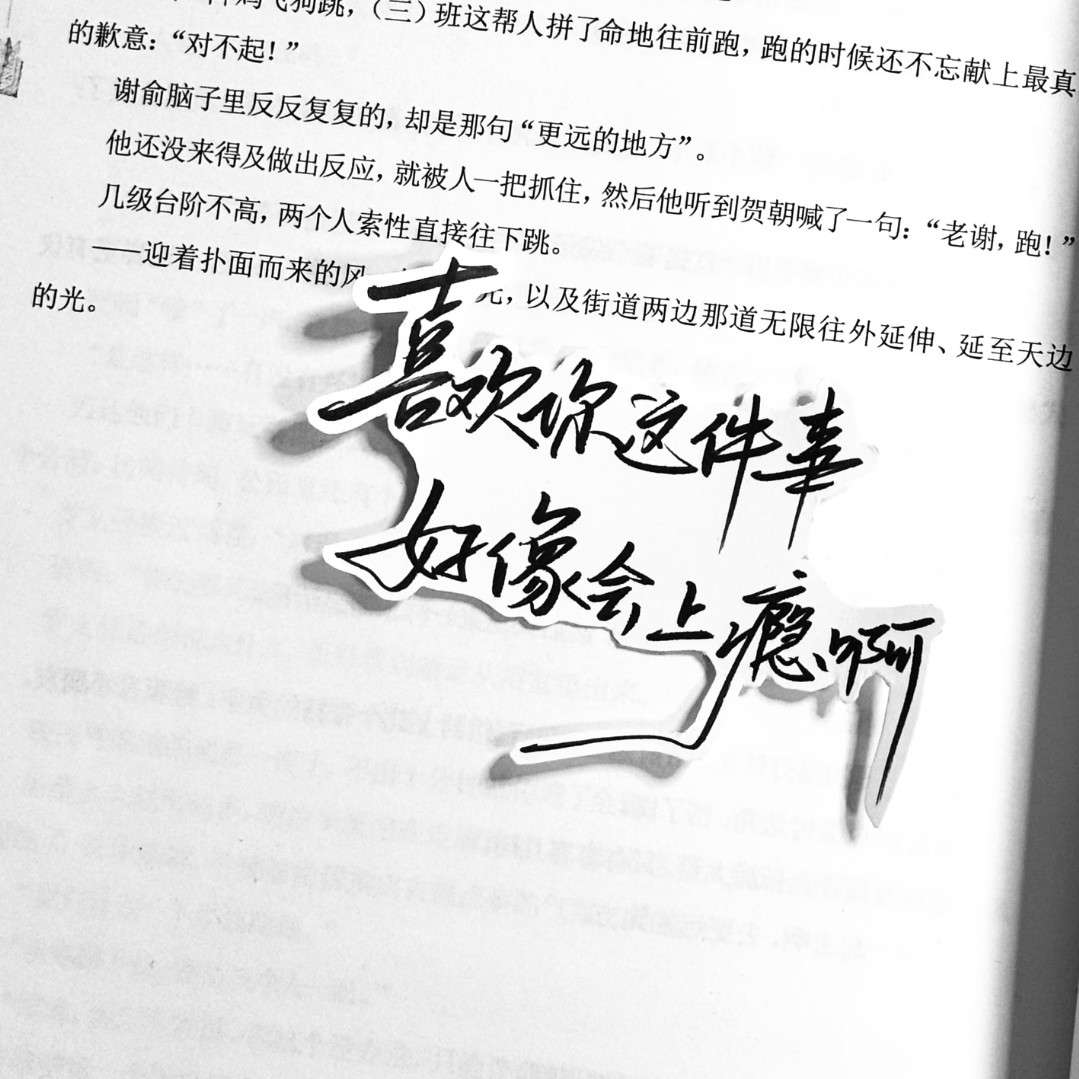 鸡飞狗跳，（三）班这帮人拼了命地往前跑，跑的时候还不忘献上最真
的歉意：“对不起！”
谢俞脑子里反反复复的，却是那句“更远的地方”。
他还没来得及做出反应，就被人一把抓住，然后他听到贺朝喊了一句：“老谢，跑！”
几级台阶不高，两个人索性直接往下跳。
——迎着扑面而来的风
光，以及街道两边那道无限往外延伸、延至天边
的光。
喜欢你这件事
好像会上瘾啊